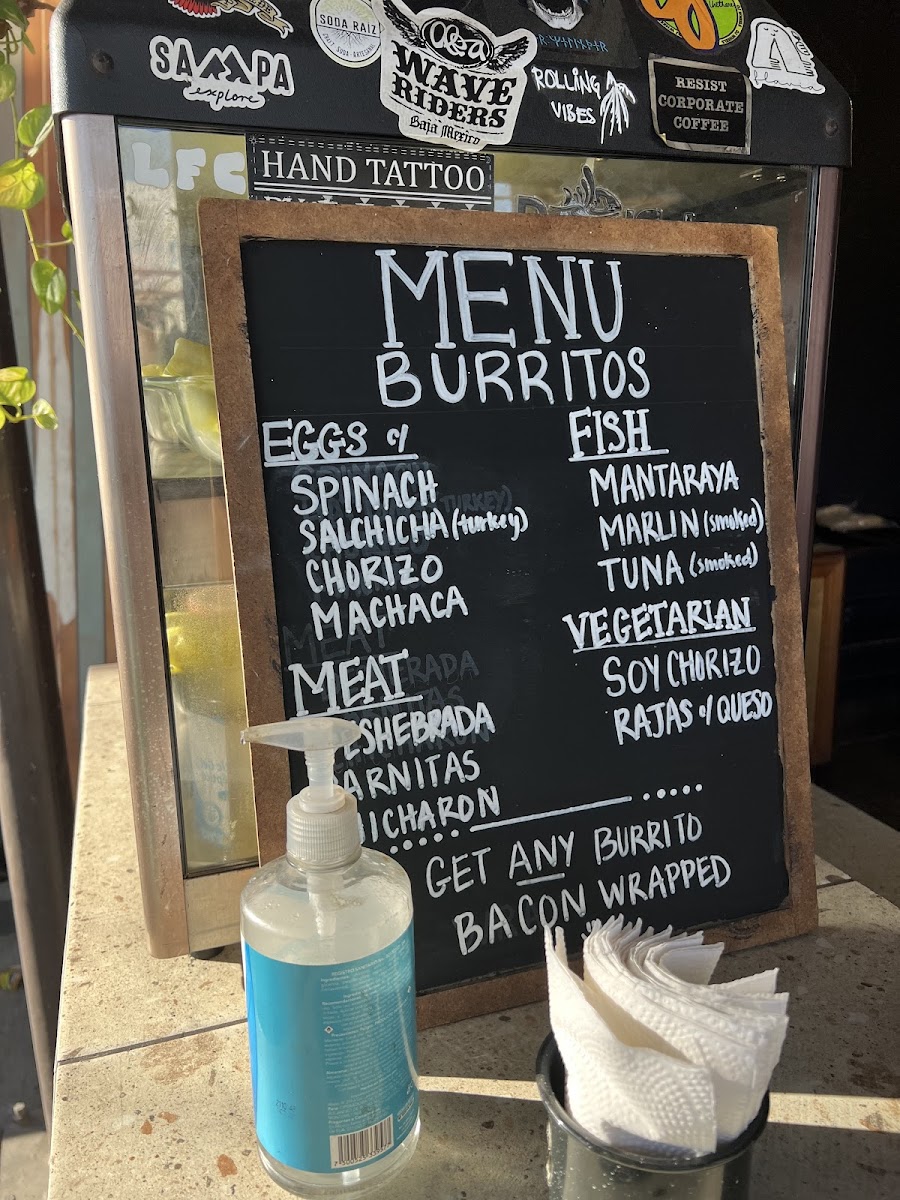 SAMPA
explore
SODA RAIZ
WAVE
RIDERS
Baja Mexico
ROLLING
VIBES
RESIST
CORPORATE
COFFEE
LFC
HAND TATTOO
MENU
BURRITOS
EGGS w/
SPINACH
SALCHICHA (turkey)
CHORIZO
MACHACA
MEAT
ESHEBRADA
ARNITAS
ICHARON
FISH
MANTARAYA
MARLIN (smoked)
TUNA (smoked)
VEGETARIAN
SOY CHORIZO
RAJAS w/ QUESO
GET ANY BURRITO
BACON WRAPPED